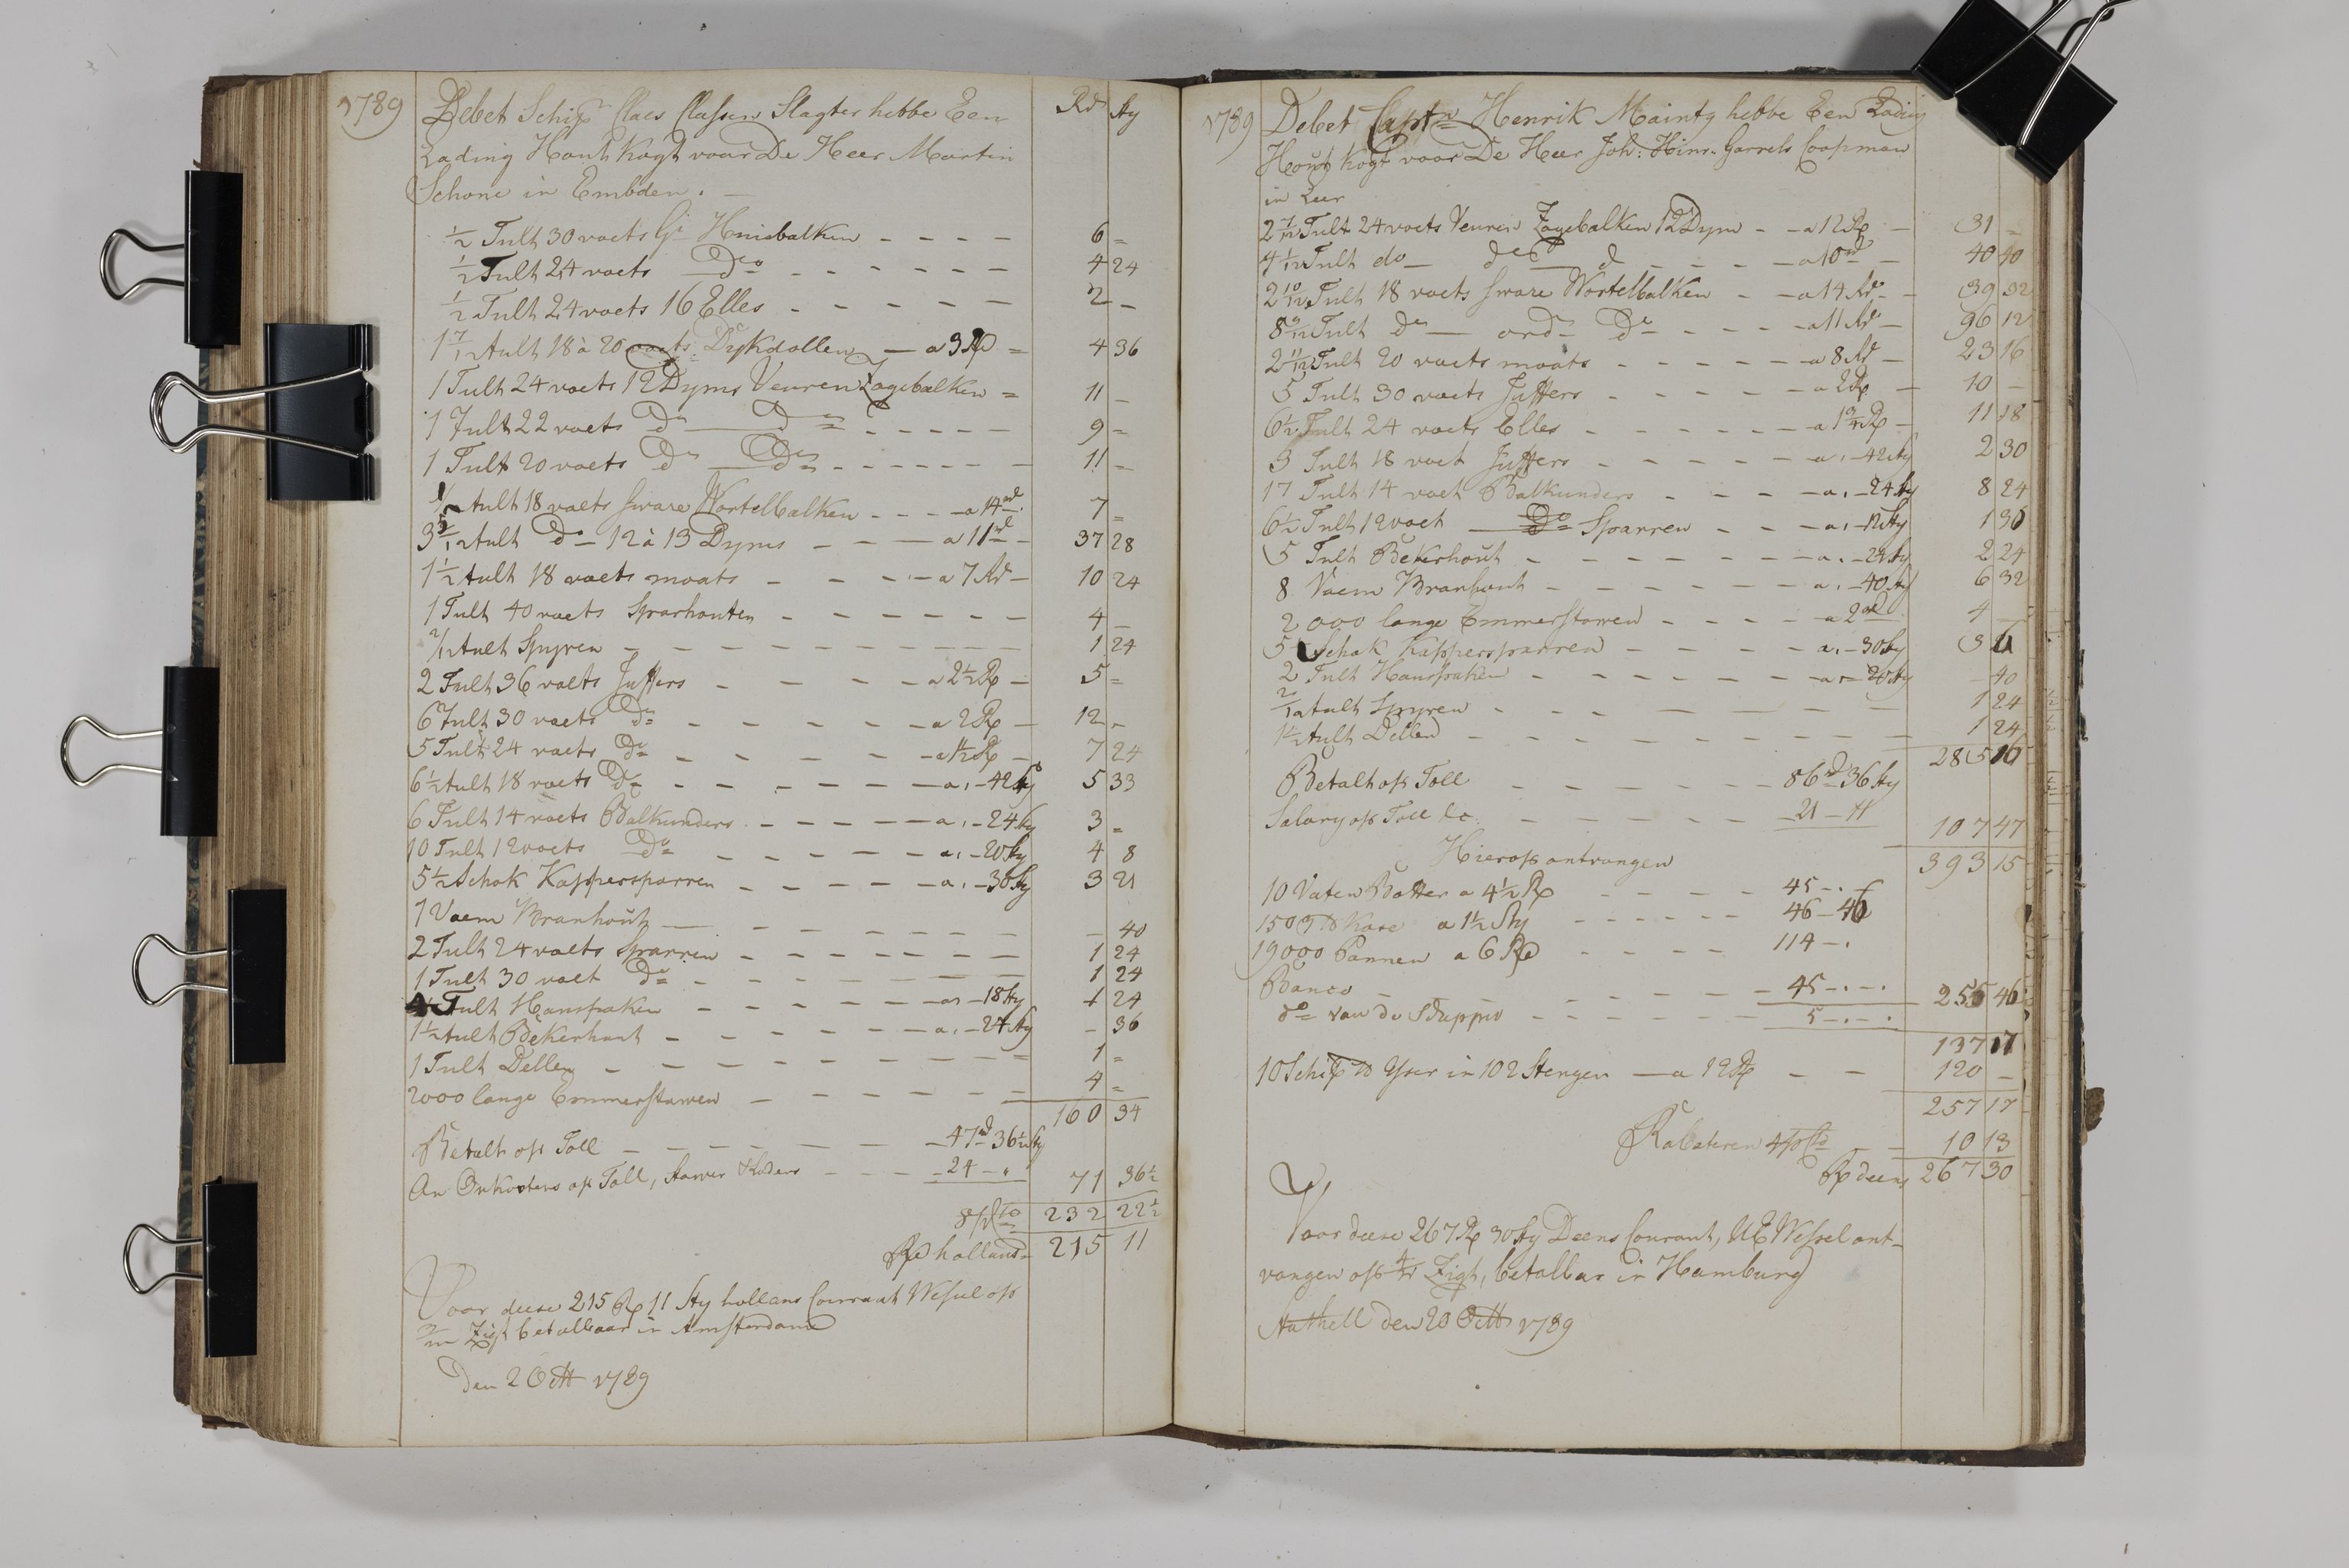 1789 Debet Schip Claes Classen Slagter hebbe Een Rd sty
Lading Hout kogt voor De Heer Martin
Schone in Embden. —
½ Tult 30 voets Gr Huisbalken - - - - 6 =
½ Tult 24 voets Do - - - - - - 4 24
½ Tult 24 voets 16 Elles - - - - - 2 -
1 7/12 Tult 18 à 20 voets Dykdollen — a 3 Rd = 4 36
1 Tult 24 voets 12 Dyms Veuren Zagebalken = 11 -
1 Tult 22 voets Do — Do - - - - - 9 =
1 Tult 20 voets Do — Do - - - - - - 11 =
½ Tult 18 voets sware Wortelbalken - - - a 14 rd. 7 =
3 5/12 Tult Do 12 à 13 Dyms - - - a 11 rd - 37 28
1½ Tult 18 voets moats - - - - a 7 Rd - 10 24
1 Tult 40 voets Sparhouten - - - - - - 4 -
2/12 Tult Spyren - - - - - - - - 1 24
2 Tult 36 voets Juffers - - - - a 2½ R - 5 =
6 Tult 30 voets Do - - - - - a 2 R - 12 -
5 Tult 24 voets Do - - - - - a 1½ R - 7 24
6½ Tult 18 voets Do - - - - - a , - 42 sty 5 33
6 Tult 14 voets Balkunders - - - - a , - 24 sty 3 =
10 Tult 12 voets Do - - - - - a , - 20 sty 4 8
5½ Schok Kappersparren - - - - a , - 30 sty 3 21
1 Vaem Branhout - - - - - - - 40
2 Tult 24 voets Sparren - - - - - - 1 24
1 Tult 30 voet Do - - - - - - 1 24
4 Tult Hanspaken - - - - - a , - 18 sty 1 24
1½ Tult Bekerhout - - - - - a , - 24 sty - 36
1 Tult Dellen - - - - - - - - 1 =
2000 lange Emmerstawen - - - - - - 4 =
160 34
Betalt op Toll - - - - - - 47 rd 36½ sty
An Onkosten op Toll, - - - 24 - , 71 36½
8 p Cto 232 22½
Rd hollans 215 11
Voor deese 215 R 11 Sty hollans Courant Wessel op
2/m Zigt betalbaar in Amsterdam
Den 2 Octt 1789
1789 Debet Captn Henrik Mainty hebbe Een Lading
Hout kogt voor De Heer Joh: Hinr: Garrels Coopman
in Leer
2 7/12 Tult 24 voets Veuren Zagebalken 12 Dym - - a 12 R - 31 =
4 1/12 Tult do — do — d - - - - a 10 rd - 40 40
2 10/12 Tult 18 voets sware Wortelbalken - - a 14 Rd - 39 32
8 9/12 Tult do — ord Do - - - - a 11 Rd - 96 12
2 11/12 Tult 20 voets moats - - - - - a 8 Rd - 23 16
5 Tult 30 voets Juffers - - - - - a 2 R - 10 -
6½ Tult 24 voets Elles - - - - - a 1¾ R - 11 18
3 Tult 18 voet Juffers - - - - - a , - 42 sty 2 30
17 Tult 14 voet Balkunders - - - - a , - 24 sty 8 24
6½ Tult 12 voet Do Sparren - - - a , - 12 sty 1 30
5 Tult Bekerhout - - - - - - a , - 24 sty 2 24
8 Vaem Branhout - - - - - - a , - 40 sty 6 32
2000 lange Emmerstawen - - - - a 2 rd 4 -
5 Schok Kappersparren - - - - a , - 30 sty 3 6
2 Tult Hanspaken - - - - - - a , - 20 sty - 40
2/12 Tult Spyren - - - - - - - 1 24
1½ Tult Dellen - - - - - - - - 1 24
285 16
Betalt op Toll - - - - - - 86 rd 36 sty
Salary op Toll &c - - - - - - 21 - 11 107 47
Hierop ontvangen 393 15
10 Vaten Botter a 4½ R - - - - - 45 - . -
1503 ℔ Kase a 1½ Sty - - - - - - 46 - 46
19000 Pannen a 6 Rd - - - - 114 - .
Banco - - - - - - - 45 - . - . 255 46
do van de - - - - - - 5 - . - .
137 17
10 Schip ℔ Yser in 102 Stengen — a 12 R - - 120 -
257 17
Rabateren 4 p Cto - = 10 13
R deens 267 30
Voor deese 267 R 30 sty Deens Courant, UE Wessel ont-
vangen op Zigt, betalbar in Hamburg
den 20 Octt 1789